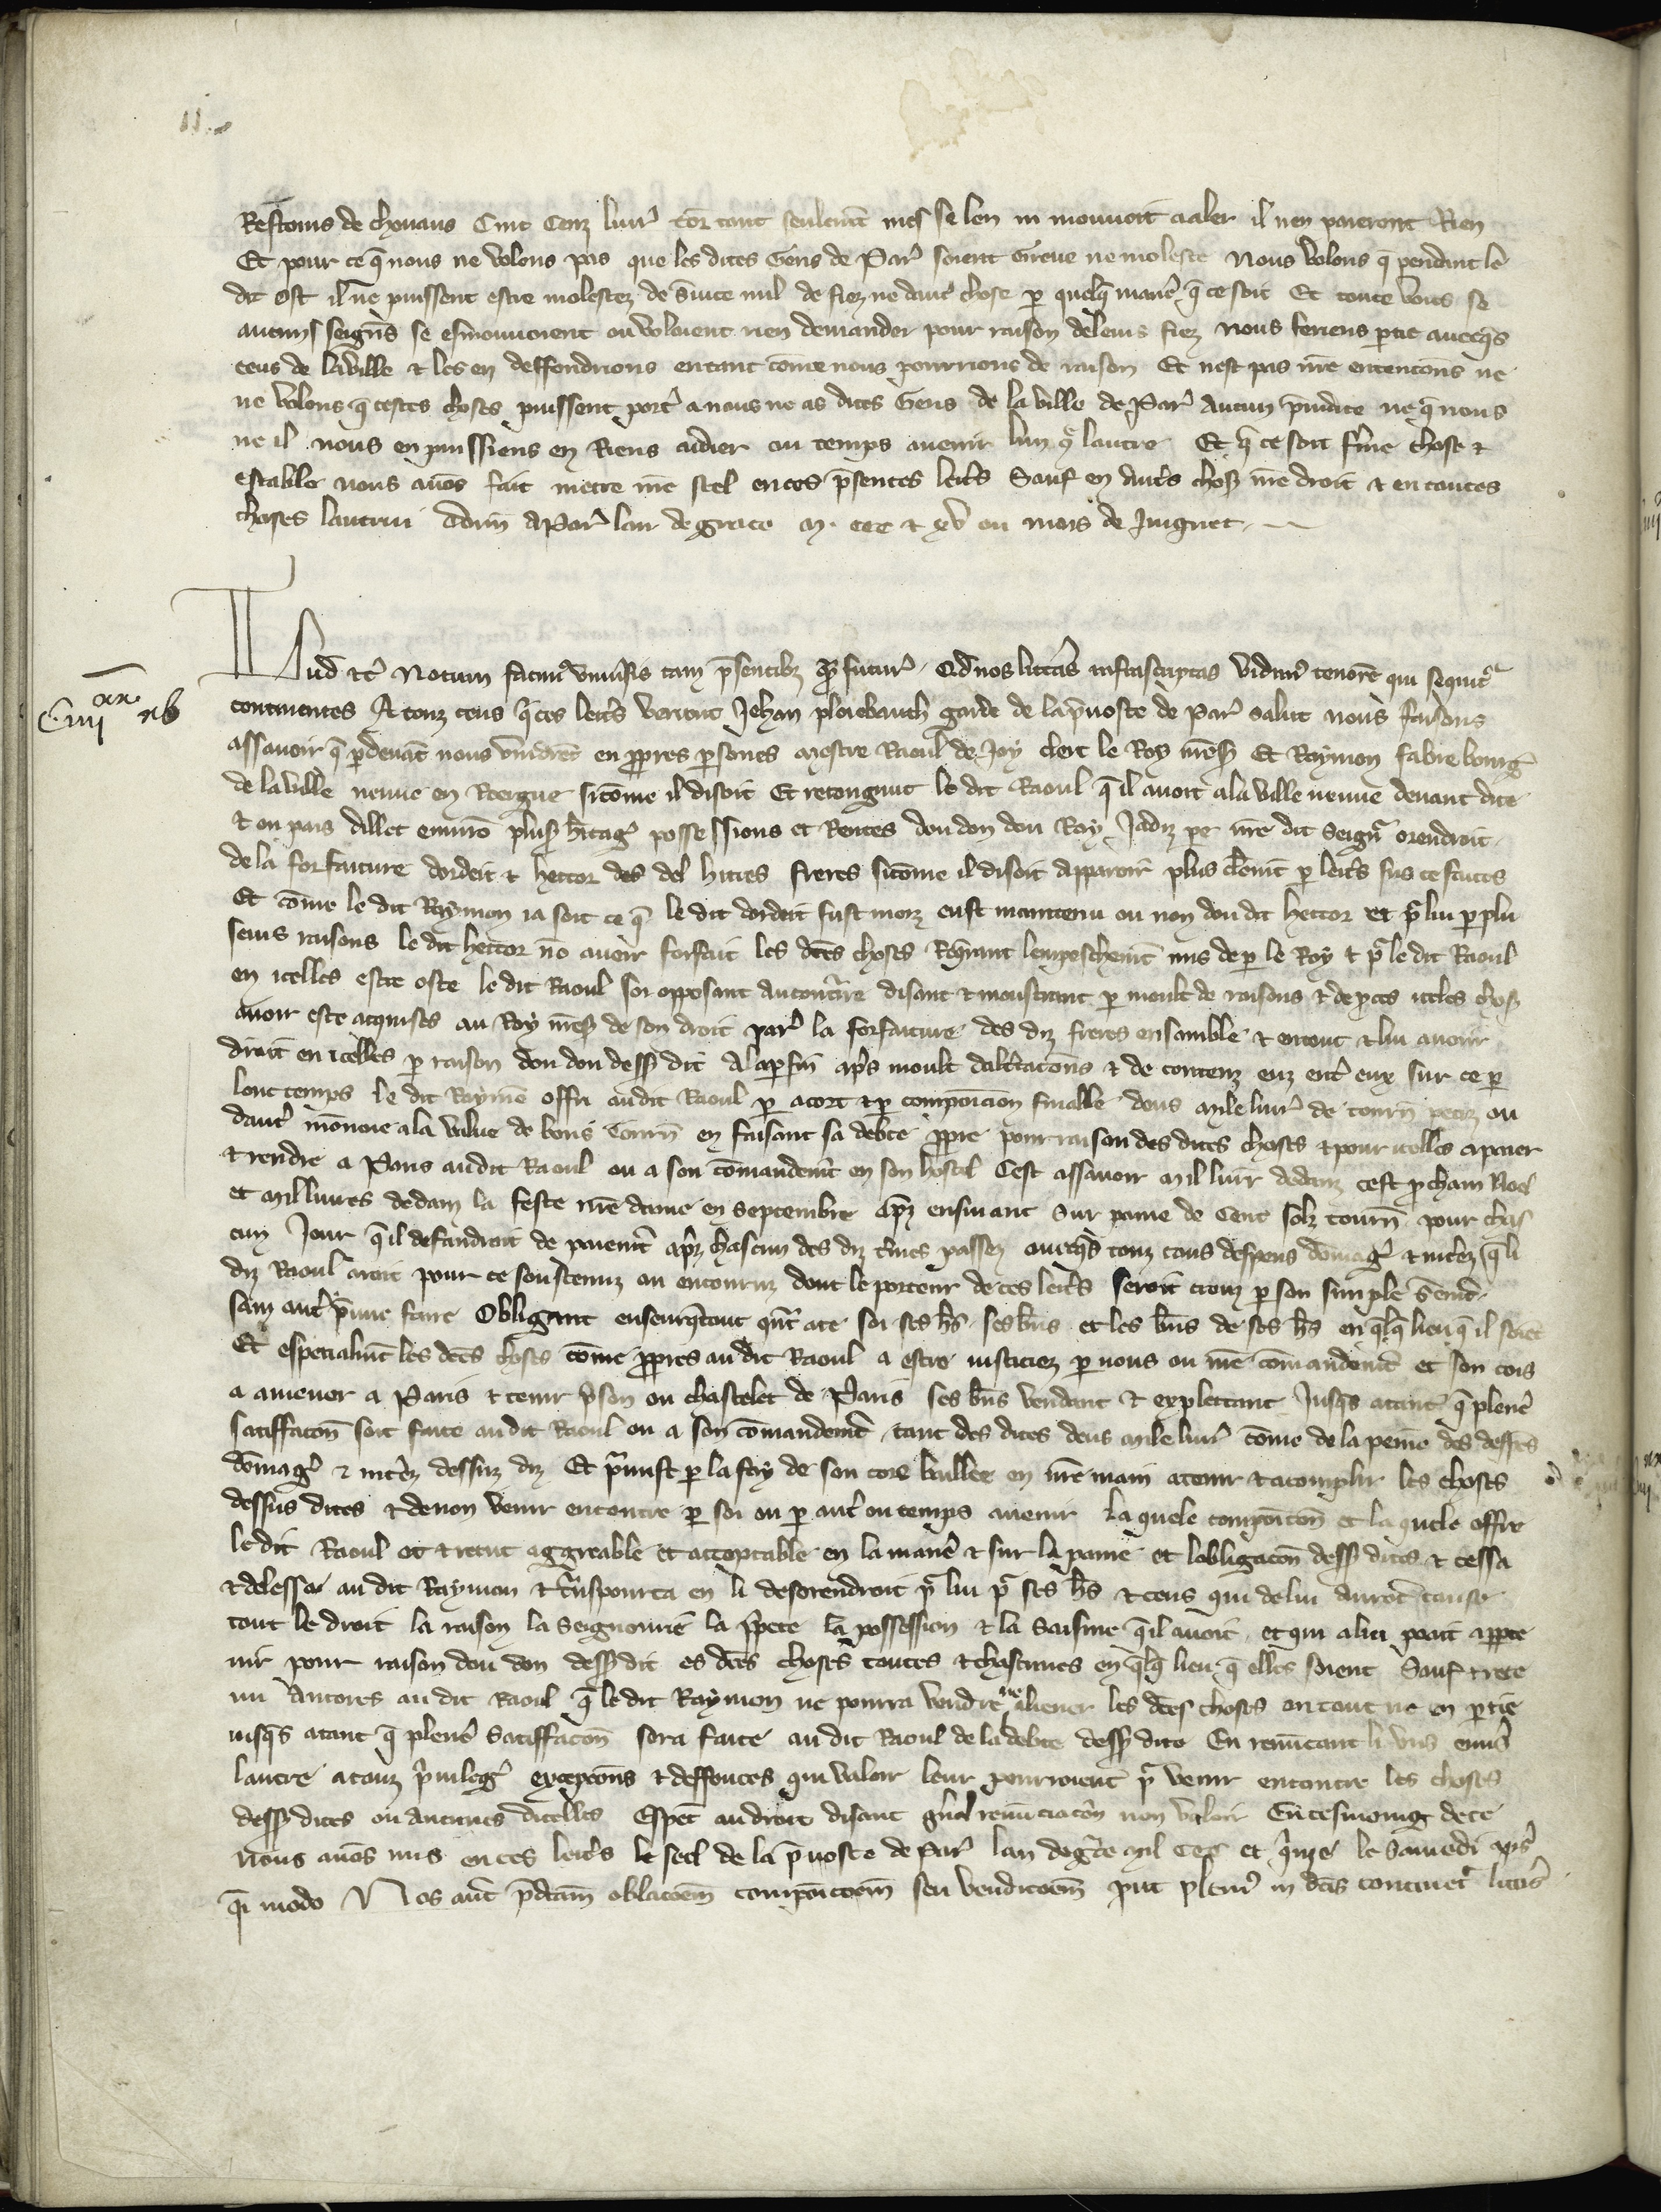 Restoms de chouaus Cinc Cenz livr tor tant seulemt mes se len ni mouvoit a aler il nen paieront Rien
Et pour ce q nous ne volons pas que les dites Gens de Par soient Greve ne moleste Nous volons q pendant le
dit ost il ne puissent estre molestez de svice nul de fiez ne daut chose p quelq manie q ce soit Et toute voies se
aucuns seigns se esmouvoient ou voloient rien demander pour raison de leurs fiez nous feriens ptie avecqs
ceus de la ville et les en deffendrions en tant come nous pourrions de raison Et nest pas nre entencons ne
ne volons q cestes choses puissent port a nous ne as dites Gens de la ville de Par Aucun piudice ne q nous
ne il nous en puissiens en Riens aidier ou temps avenir lun q lautre Et q ce soit ferme chose et
estable nous avos fait metre nre seel en ces psentes letts Sauf en auts chos nre droit et en toutes
choses lautrui donn a Par lan de grace M. CCC et xv ou mois de Juignet
Lud etc Notum facim univsis tam psentibz q futur Qd nos litteras infrascriptas vidim tenore qui sequit
Ciiii xx xb
continentes A touz ceus q ces letts verront Jehan ploiebauch garde de la pvoste de Par Salut nous faisons
assavoir q p devat nous vindret en ppres psones mestre Raoul de Joy clerc le Roy nres Et Raymon fabre bourg
de la ville neuve en Roergue sicome il disoit Et recongnut le dit Raoul q il avoit a la ville neuve devant dite
et ou pais dillec enviro plus hitag possessions et Rentes dou don dou Roy Jadiz pe nre dit Seign orendroit
de la forfaiture dordeit et hector des del hieres freres sicome il disoit apparoir plus clemt p letts sus ce faites
Et come le dit Raymon ia soit ce q le dit dordeit fust morz eust maintenu ou non dou dit hector et p lui p plu
seurs raisons le dit hector no avoir forfait les dces choses Rqrant lempeschemt mis de p le Roy et p le dit Raoul
en icelles estre oste le dit Raoul soi opposant au contre disant et moustrant p moult de raisons et de pces icelles chos
avoir este acquises au Roy nres de son droit par la forfaiture des diz freres ensamble et en tout et lui avoir
droit en icelles p raison dou don dess dit A la pfin aps moult daltacons et de contenz euz ent eux sur ce p
lonc temps le dit Raymo offri audit Raoul p acort et p compoicion finalle deus mile livr de tourn petiz ou
daut monoie a la value de bons tourn en faisant sa debte ppre pour raison des dites choses et pour icelles a paier
et rendre a Paris audit Raoul ou a son comandemt en son hostel Cest assavoir mil livr dedanz cest pcham Noel
et mil livres dedanz la feste nre dame en septembre aps ensuivant Sur paine de Cent solz tourn pour chas
cun Jour q il defaudroit de paiemt aps chascun des diz tmes passez avecqs touz cous despens domag et intez q li
diz Raoul aroit pour ce soustenuz ou encouruz dont le porteur de ces letts seroit creuz p son simple semt
sanz aut pueve faire Obligant enseurqtout qnt a ce soi ses hs ses bns et les bns de ses hs en qlq lieu q il soiet
Et especialmt les dces choses come ppres audit Raoul a estre iusticiez p nous ou nre comandemt et son cors
a amener a Paris et tenir pson ou chastelet de Paris ses bns vendant et explectant Jusqs a tant q plene
satiffacon soit faite audit Raoul ou a son comandemt tant des dites deus mile livr come de la peine des despes
domag et intez dessus diz Et pmist p la foy de son cors baillee en nre main a tenir et acomplir les choses
dessus dites et de non venir encontre p soi ou p aut ou temps avenir La quele compoicon et la quele offre
le dit Raoul ot et tint aggreable et acceptable en la manie et sur la paine et lobligacon dess dites et cessa
et delessa au dit Raymon et tnsporta en li desorendroit p lui p ses hs et ceus qui de lui auront cause
tout le droit la raison la Seignourie la ppete la possession et la Saisine q il avoit et qui a lui poait appte
nir pour raison dou don dess dit es dces choses toutes et chascunes en qlq lieu q elles soient Sauf et rete
nu Ancores au dit Raoul q le dit Raymon ne pourra vendre ne aliener les dces choses en tout ne en ptie
iusqs a tant q plene Satiffacon sera faite au dit Raoul de la debte dess dite En renucant li uns envs
lautre a touz pvileg excepcons et deffenses qui valoir leur pourroient p venir encontre les choses
dess dites ou aucunes dicelles Espet au droit disant gnal renunciacon non valoir En tesmoing de ce
Nous avos mis en ces letts le seel de la pvoste de Par lan de gce mil CCC et qinze le Samedi aps
qi modo Nos aut pdcam oblacoem compoicoem seu vendicoem put pleni in dcis continet litis